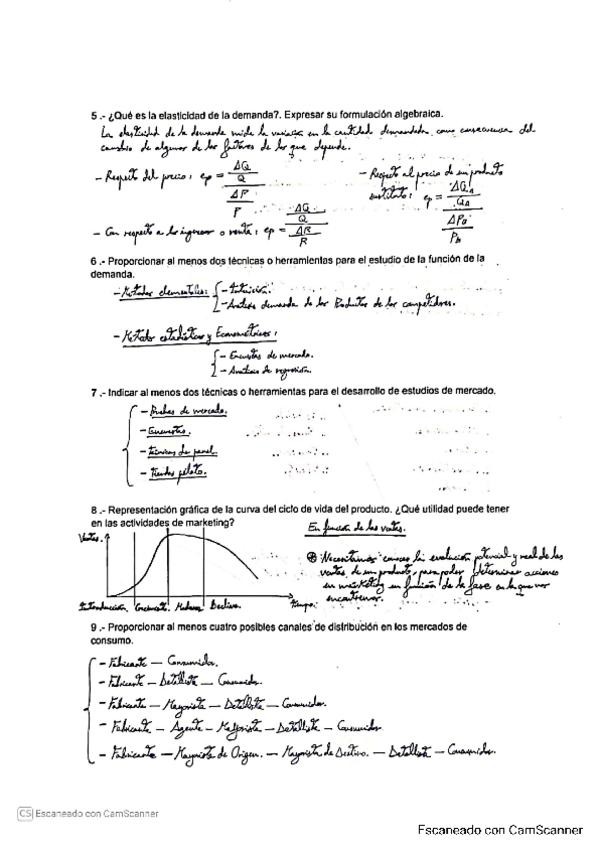 5 .- ¿Qué es la elasticidad de la demanda?. Expresar su formulación algebraica.
La elasticidad de la demanda mide la variación en la cantidad demandada, como consecuencia del
cambio de algunos de los factores de los que depende.
- Respecto del precio: ep = ΔQ/Q / ΔP/P
- Respecto al precio de un producto
sustituto: ep = ΔQA/QA / ΔPB/Pb
- Con respecto a los ingresos o renta: ep = ΔQ/Q / ΔR/R
6 .- Proporcionar al menos dos técnicas o herramientas para el estudio de la función de la
demanda.
- Métodos elementales: - Intuición.
- Análisis demanda de los Productos de los competidores.
- Métodos estadísticos y Econométricos:
- Encuestas de mercado.
- Análisis de regresión.
7 .- Indicar al menos dos técnicas o herramientas para el desarrollo de estudios de mercado.
- Pruebas de mercado.
- Encuestas.
- Técnicas de panel.
- Tiendas piloto.
8 .- Representación gráfica de la curva del ciclo de vida del producto. ¿Qué utilidad puede tener
en las actividades de marketing?
En función de las ventas.
Ventas.
Necesitamos conocer la evolución potencial y real de las
ventas de un producto, para poder determinar acciones
en marketing en función de la fase en la que nos
encontremos.
Introducción Crecimiento Madurez Declive. tiempo.
9 .- Proporcionar al menos cuatro posibles canales de distribución en los mercados de
consumo.
- Fabricante — Consumidor.
- Fabricante — Detallista — Consumidor.
- Fabricante — Mayorista — Detallista — Consumidor.
- Fabricante — Agente — Mayorista — Detallista — Consumidor
- Fabricante — Mayorista de Origen. — Mayorista de Destino. — Detallista — Consumidor.
CS Escaneado con CamScanner
Escaneado con CamScanner